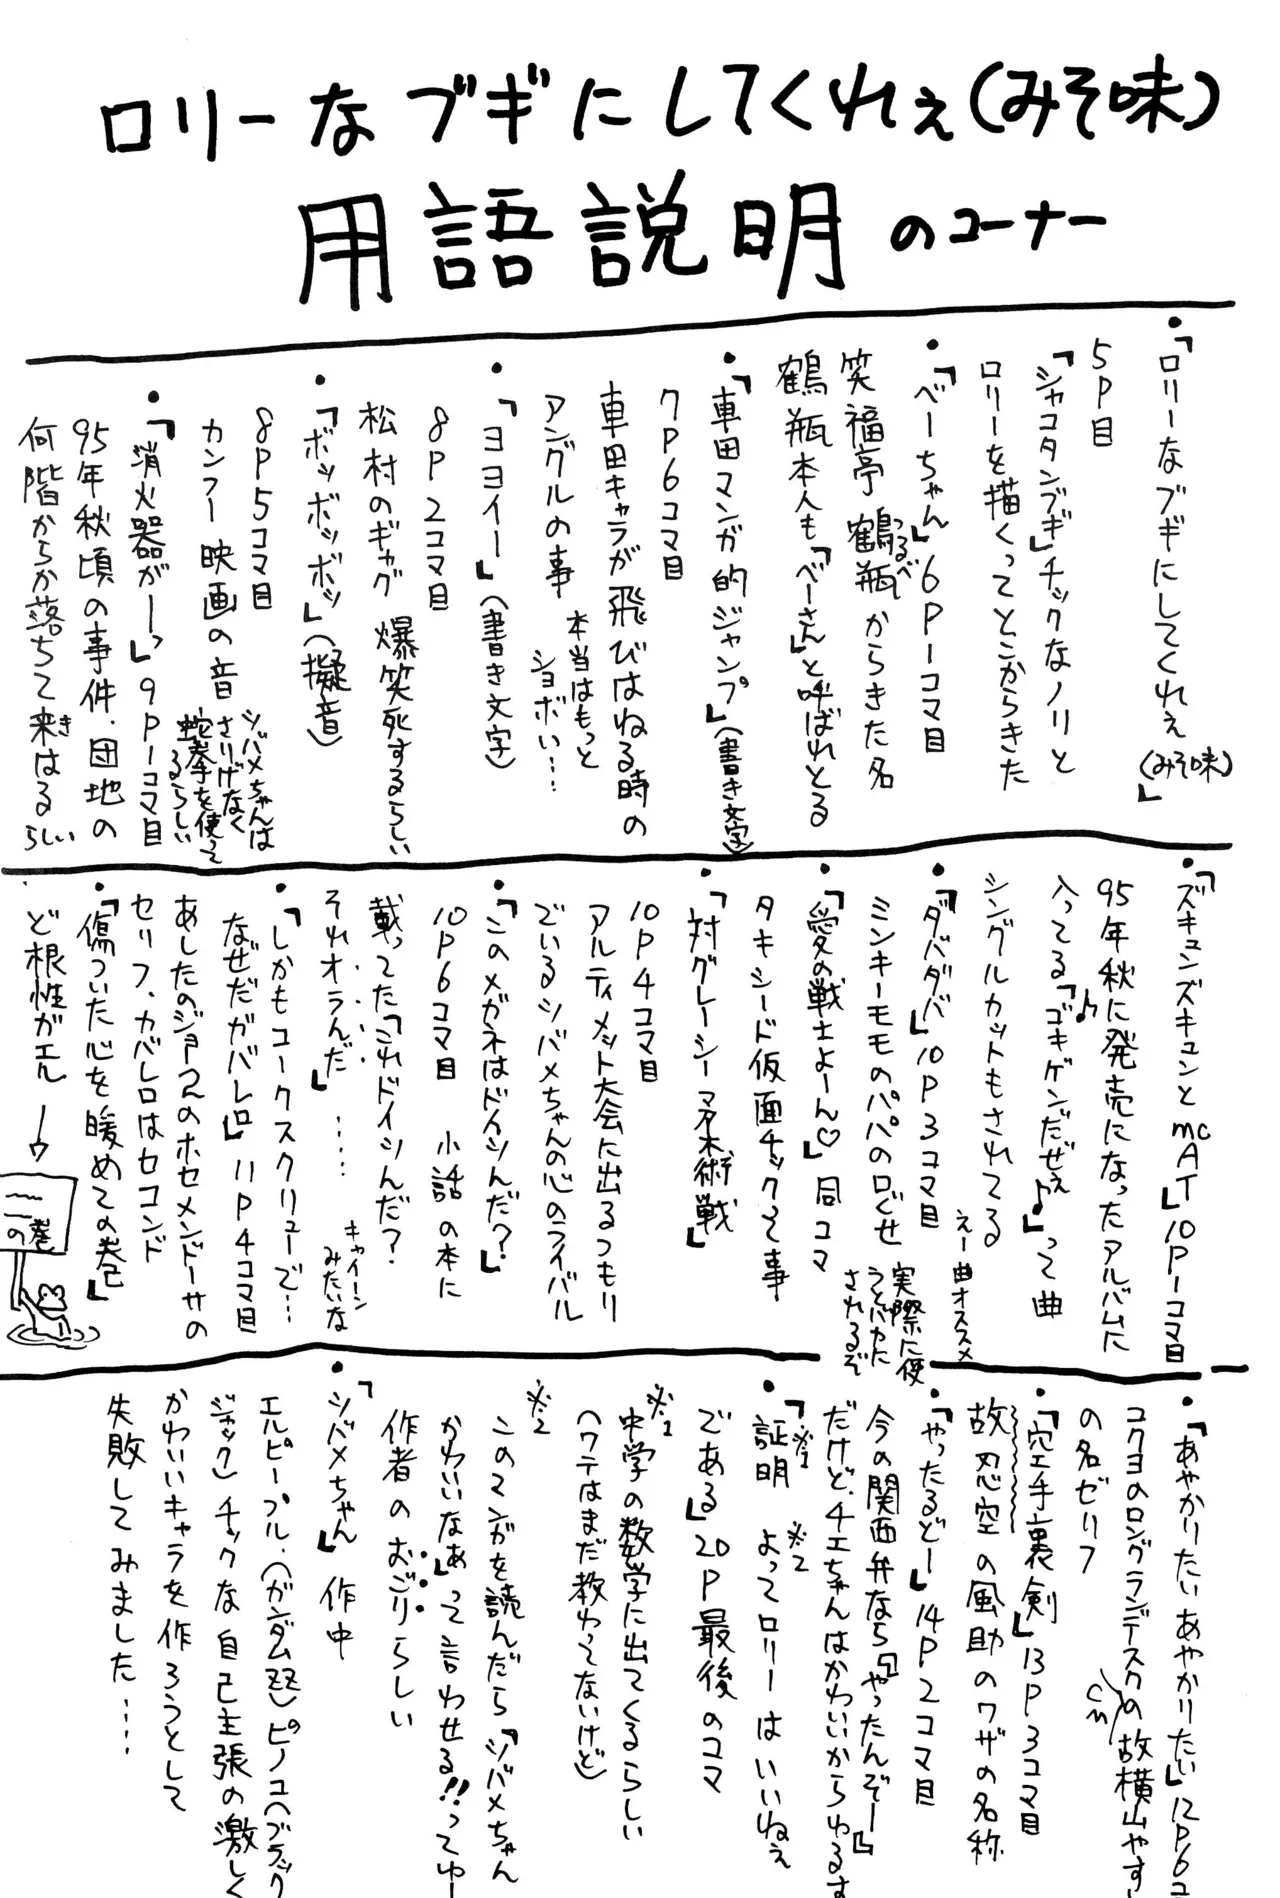 ロリーなブギにしてくれぇ(みそ味)
用語説明のコーナー
・「ロリーなブギにしてくれぇ(みそ味)」
5P目
「シャコタンブギ」チックなノリと
ロリーを描くってとこからきた
・「べーちゃん」6P1コマ目
笑福亭鶴瓶からきた名
つるべ
鶴瓶本人も「べーさん」と呼ばれとる
・「車田マンガ的ジャンプ」(書き文字)
7P6コマ目
車田キャラが飛びはねる時の
アングルの事
本当はもっと
ショボい…
・「ヨヨイー」(書き文字)
8P2コマ目
松村のギャグ 爆笑死するらしい
・「ボッボッボッ」(擬音)
8P5コマ目
カンフー映画の音
シバメちゃんは
さりげなく
蛇拳を使って
るらしい
・「消火器がーっ」9P1コマ目
95年秋頃の事件.団地の
何階からか落ちて来はるらしい
き
・「ズキュンズキュンとmcAT」10P1コマ目
95年秋に発売になったアルバムに
入ってる「♪ゴキゲンだぜぇ♪」って曲
シングルカットもされてる
えー曲オススメ
・「ダバダバ」10P3コマ目
ミンキーモモのパパの口ぐせ
実際に使
うとバカに
されるぞ
・「愛の戦士よーん♡」同コマ
タキシード仮面チックって事
・「対グレーシーマ木術戦」
10P4コマ目
アルティメット大会に出るつもり
でいるシバメちゃんの心のライバル
・「このメガネはドイシんだ?」
10P6コマ目 小話の本に
載ってた「これドイシんだ?
それオラんだ」……
キャイーン
みたいな
・「しかもコークスクリューで…
なぜだガバレロ」11P4コマ目
あしたのジョーのホセメンドーサの
セリフ、カバレロはセコンド
・「傷ついた心を暖めての巻」
ど根性ガエル
の巻
・「あやかりたいあやかりたい」12P6コ
コクヨのロングランデスクの故横山やす
CM
の名ゼリフ
・「空手裏剣」13P3コマ目
故忍空の風助のワザの名称
・「やったるどー」14P2コマ目
今の関西弁なら「やったんぞー」
だけど、チエちゃんはかわいいからゆるす
・「証明 よってロリーはいいねぇ
※1
※2
である」20P最後のコマ
※1
中学の数学に出てくるらしい
(ワテはまだ教わってないけど)
※2
このマンガを読んだら「シバメちゃん
かわいいなぁ」って言わせる!!ってゆー
作者のおごりらしい
・「シバメちゃん」作中
エルピープル.(ガンダムZZ)ピノコ(ブラック
の
ジャック)チックな自己主張の激しく
かわいいキャラを作ろうとして
失敗してみました……